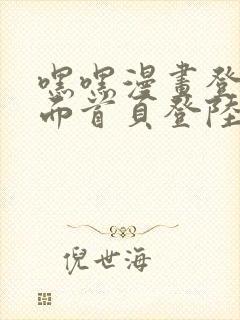 嘿嘿漫畫登
面首頁登陸
倪世海